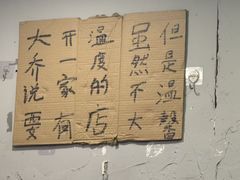 大乔说要
开一家有
温度的店
虽然不大
但是温馨